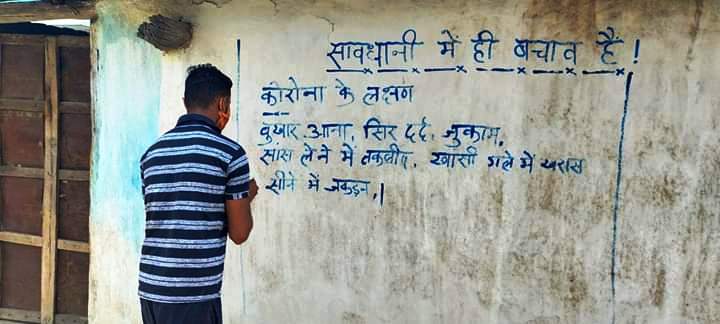 सावधानी में ही बचाव हैं !
कोरोना के लक्षण
बुखार आना, सिर दर्द, जुकाम,
सांस लेने में तकलीफ, खासी गले में खरास
सीने में जकड़न,